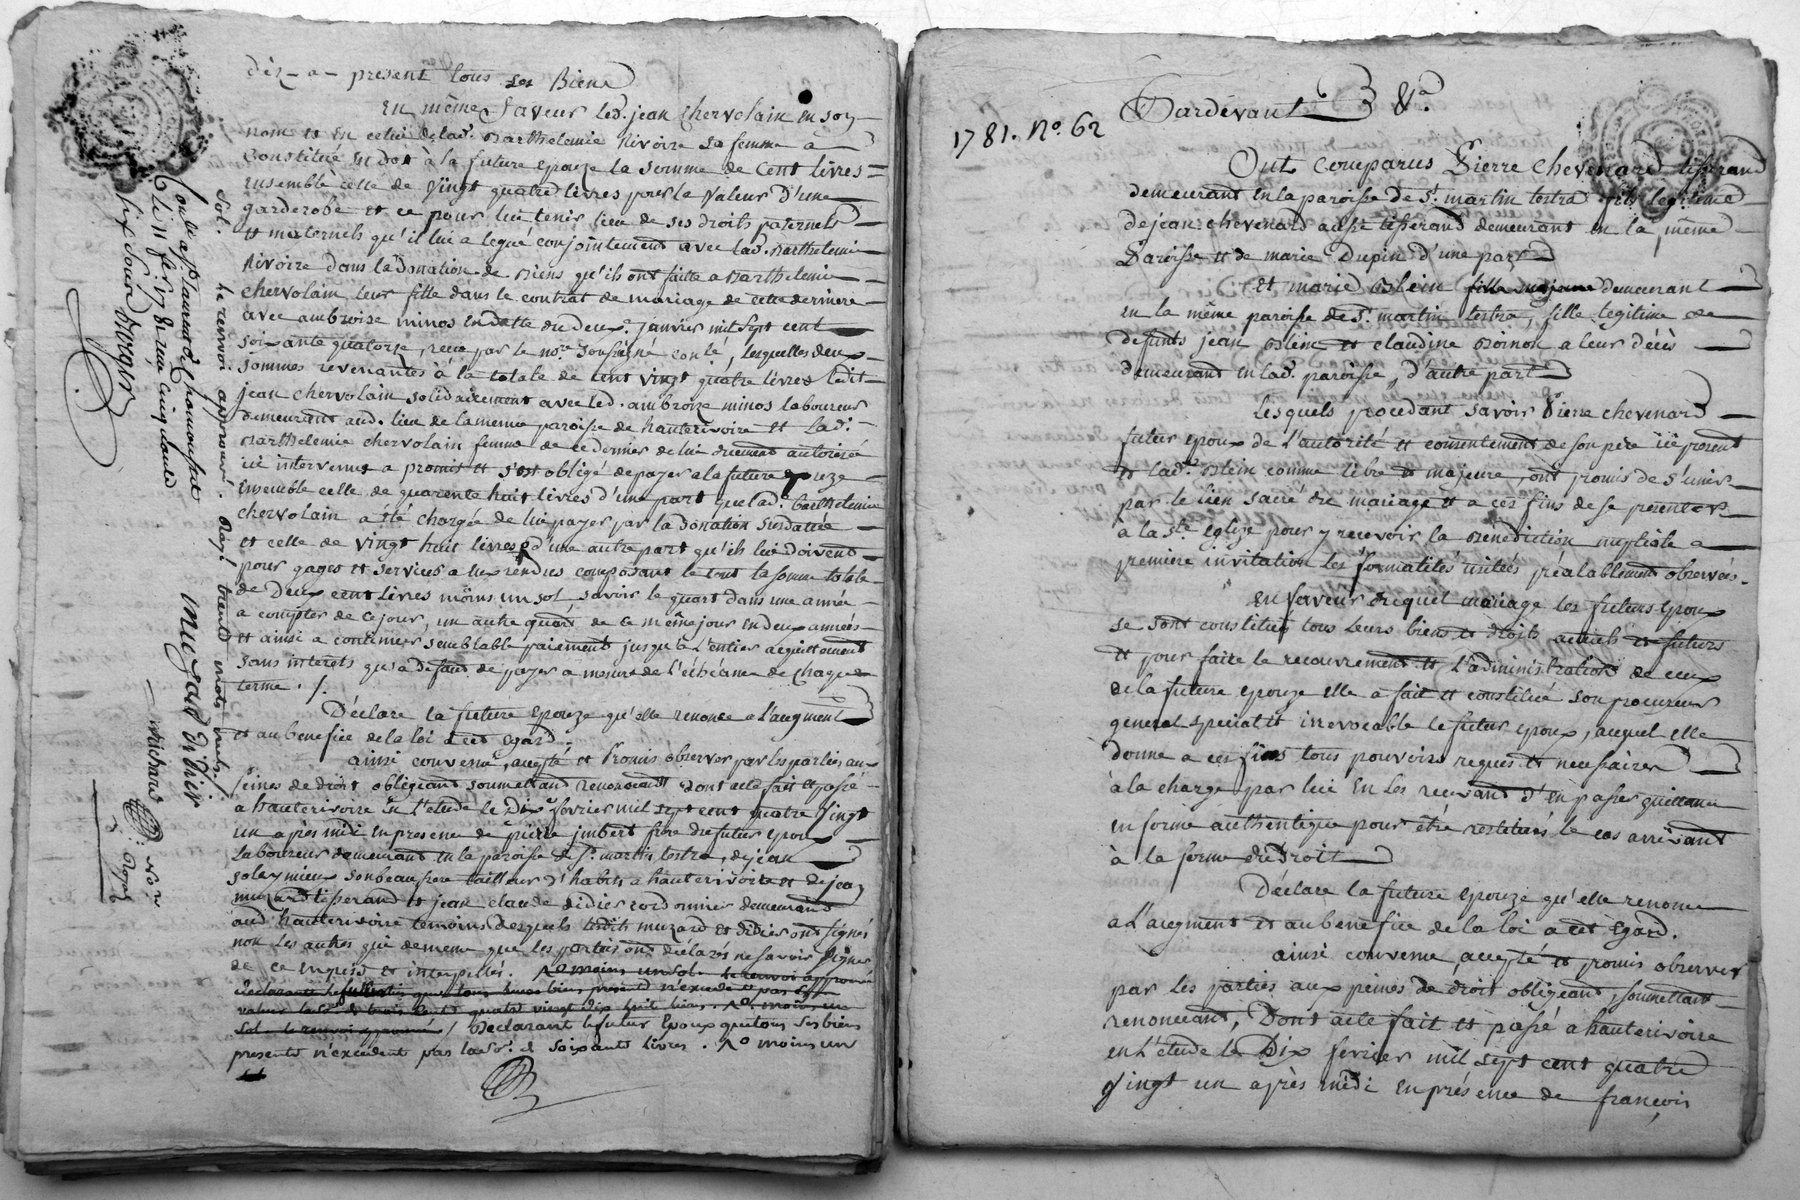 dèz-a-present tous ses Biens
En même faveur led. jean chervolain en son
nom et en celui de lad. Barthelemie Rivoire sa femme a
Constitué en dot à la future epouze la somme de cent livres
ensemble celle de vingt quatre livres pour la valeur d'une
garderobe et ce pour lui tenir lieu de ses droits paternels
et maternels qu'il lui a legué conjointement avec lad. Barthelemie
Rivoire dans la donation de Biens qu'ils ont faitte a Barthelemie
chervolain leur fille dans le contrat de mariage de cette derniere
avec ambroise minos en datte du deux janvier mil sept cent
soixante quatorze, reçu par le nore. soussigné conlé, lesquelles deux
sommes revenantes à la totale de cent vingt quatre livres ledit
jean chervolain solidairement avec led. ambroize minos laboureur
demeurant aud. lieu de la meme paroisse de hauterivoire et lad.
Barthelemie chervolain femme de ce dernier de lui duement autorisée
ici intervenus a promis et s'est obligé de payer a la future epouze
Ensemble celle de quarente huit livres d'une part que lad. Barthelemie
chervolain a été chargée de lui payer par la donation susdattée
et celle de vingt huit livres d'une autre part qu'ils lui doivent
pour gages et services a eux rendus composant le tout la somme totale
de Deux cent livres moins un sol savoir le quart dans une année
a compter de ce jour, un autre quart de ce même jour en deux années
et ainsi a continuer semblable paiement jusqu'à l'entier acquittement
sans interets qu'a defaut de payer a mesure de l'échéance de chaque
terme ./.
Déclare la future epouze qu'elle renonce a l'augment
et au benefice de la loi a cet egard.
ainsi convenu, accepté et promis observer par les parties aux
peines de droit obligeant soumettant renonçant Dont acte fait et passé
a hauterivoire en l'etude le Dix fevrier mil sept cent quatre vingt
un après midi en presence de pierre imbert frere du futur epoux
Laboureur demeurant en la paroisse de St. martin lestra, de jean
solleymieux son beaufrere tailleur d'habits a hauterivoire et de jean
muzard tisserand et jean claude didier cordonnier demeurants
aud. hauterivoire temoins desquels lesdits muzard et didier ont signés
non les autres qui de meme que les parties ont déclarés ne savoir signer
de ce enquis et interpellés.
Declarant le futur Epoux que tous ses biens
presents n'excedent pas la so. de soixante livres. No moins un
sol. le renvoi approuvé. Rayé trente mots nuls ./.
muzard didier
Richard
1781. No. 62
Pardevant &a.
Ont Comparus Pierre Chevenard tisserand
demeurant en la paroisse de St. martin lestra fils legitime
de jean chevenard aussi tisserand demeurant en la même
Paroisse et de marie Dupin d'une part
Et marie Blein fille majeure demeurant
en la même paroisse de St. martin lestra, fille legitime de
defunts jean Blein et claudine Boinon a leur décès
demeurant en lad. paroisse, d'autre part
Lesquels procedant savoir Pierre chevenard
futur epoux de l'autorité et consentement de son père ici present
et lad. Blein comme libre et majeure, ont promis de s'unir
par le lien sacré du mariage et a ces fins de se presenter
a la Ste. Eglize pour y recevoir la Benediction nuptiale a
premiere invitation les formalités usitées préalablement observées.
En faveur duquel mariage les futurs epoux
se sont constitués tous leurs biens et droits actuels et futurs
et pour faire le recouvrement et l'administration de ceux
de la future epouze elle a fait et constitué son procureur
general special et irrevocable le futur epoux, auquel elle
donne a ces fins tous pouvoirs requis et necessaires
à la charge par lui en les recevant d'en passer quittance
en forme authentique pour être restitués le cas arrivant
à la forme du Droit
Déclare la future epouze qu'elle renonce
a l'augment et au benefice de la loi a cet egard.
ainsi convenu, accepté et promis observer
par les parties aux peines de droit obligeant, soumettant
renonceant, Dont acte fait et passé a hauterivoire
en l'etude le Dix fevrier mil sept cent quatre
vingt un après midi en présence de françois